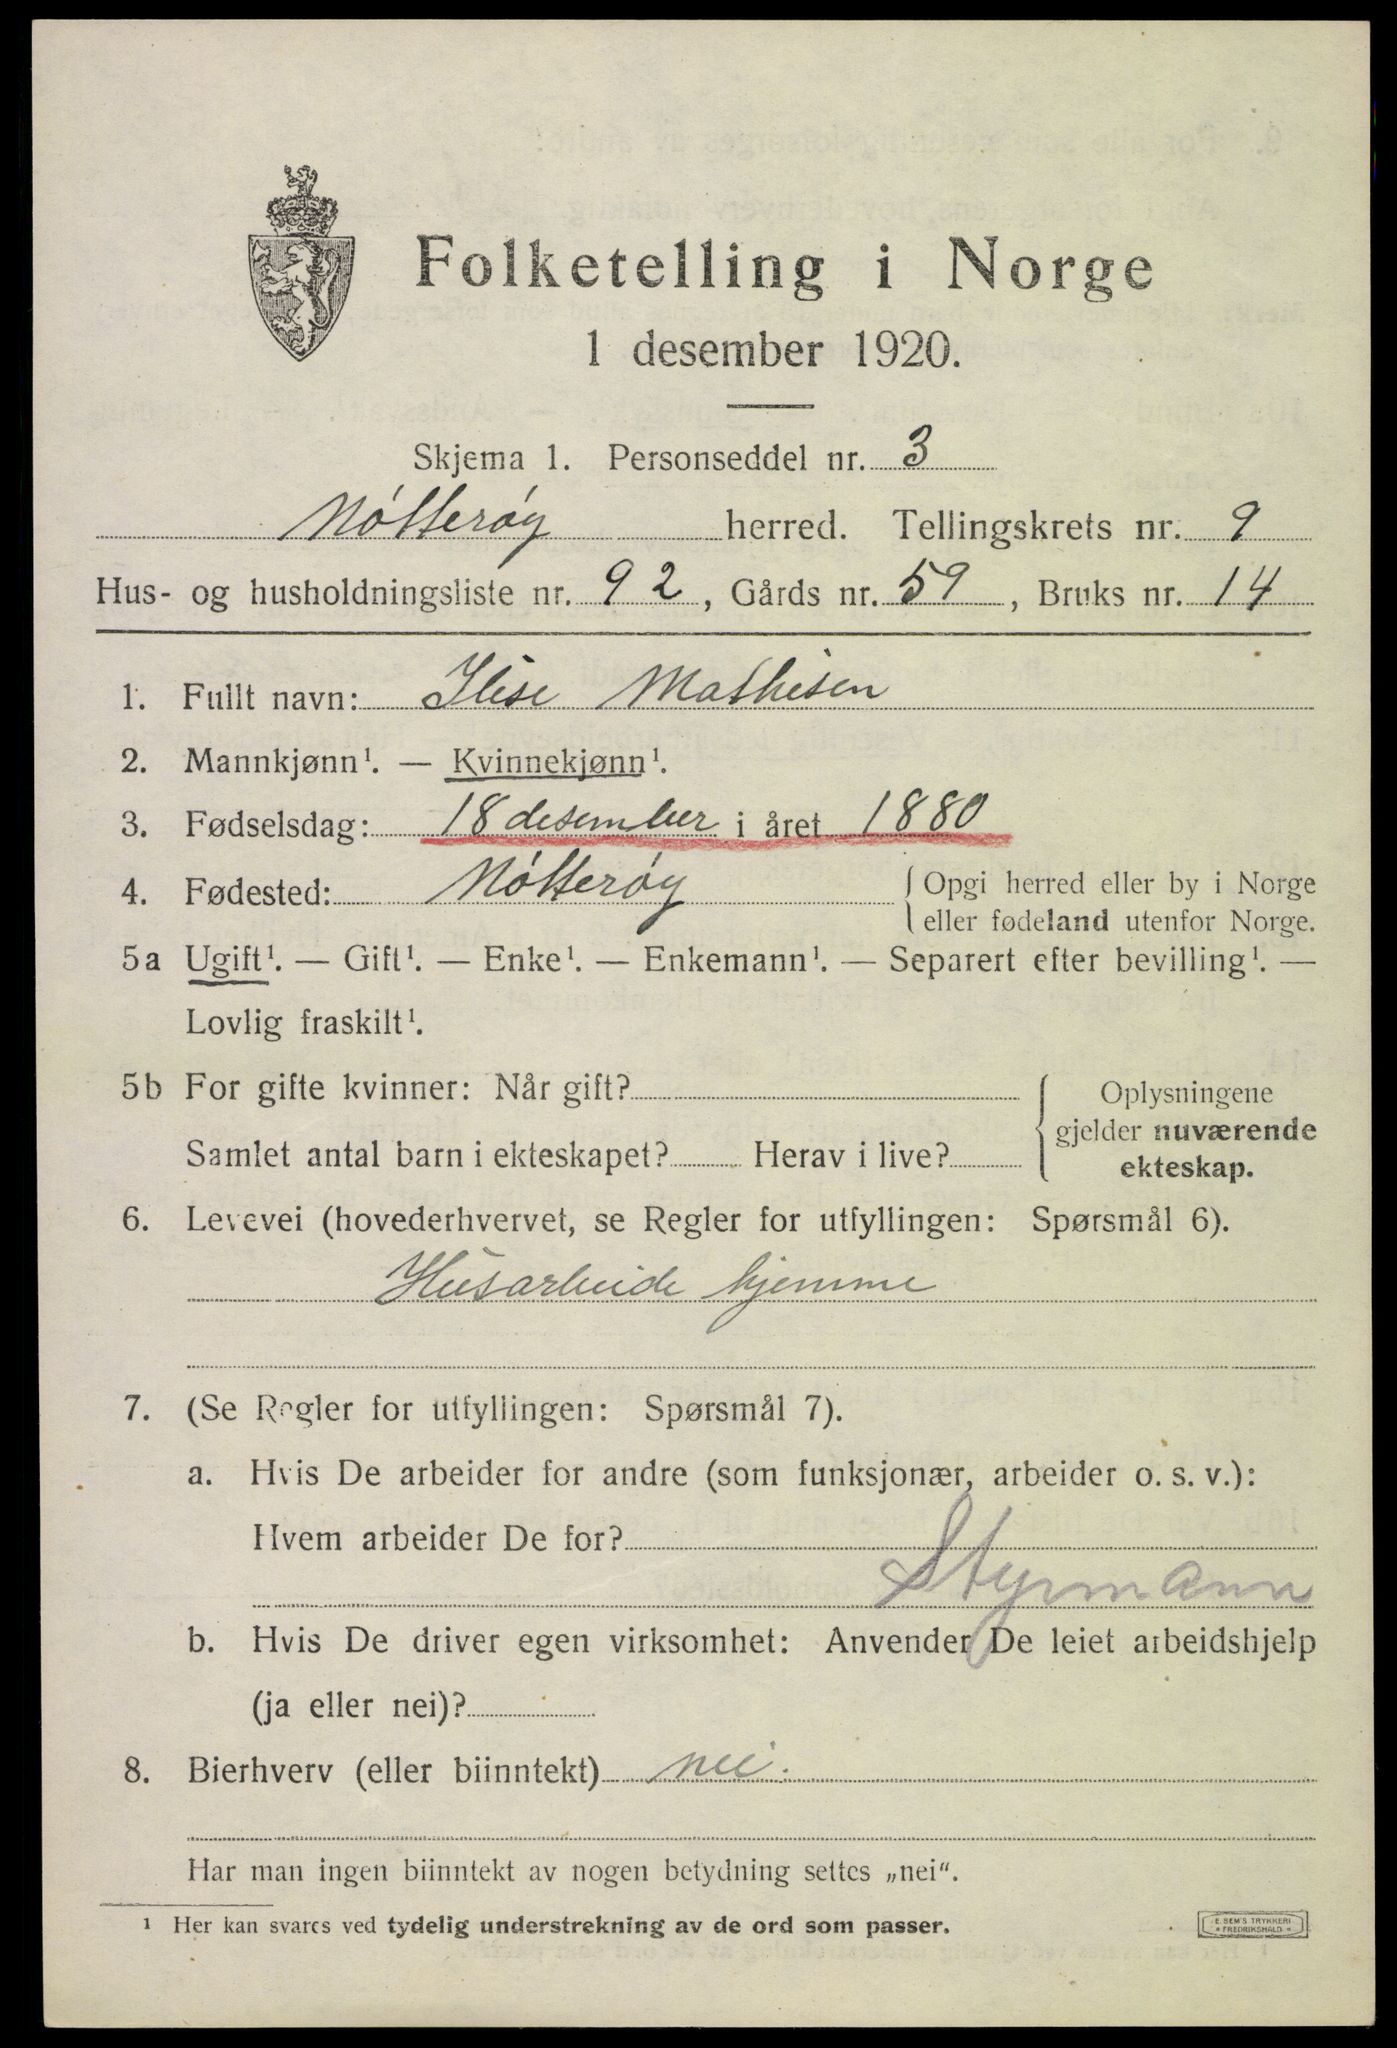 Folketelling i Norge
1 desember 1920.
Skjema 1. Personseddel nr. 3
Nótterøy herred. Tellingskrets nr. 9
Hus- og husholdningsliste nr. 92, Gårds nr. 59, Bruks nr. 14
1. Fullt navn: Ilise Mathisen
2. Mannkjønn¹. — Kvinnekjønn¹.
3. Fødselsdag: 18 desember i året 1880
4. Fødested: Nótterøy { Opgi herred eller by i Norge
eller fødeland utenfor Norge.
5a Ugift¹. — Gift¹. — Enke¹. — Enkemann¹. — Separert efter bevilling¹. —
Lovlig fraskilt¹.
5b For gifte kvinner: Når gift? { Oplysningene
gjelder nuværende
Samlet antal barn i ekteskapet? Herav i live?
ekteskap.
6. Levevei (hovederhvervet, se Regler for utfyllingen: Spørsmål 6).
Husarbeide hjemme
7. (Se Regler for utfyllingen: Spørsmål 7).
a. Hvis De arbeider for andre (som funksjonær, arbeider o. s. v.):
Hvem arbeider De for?
Styrmann
b. Hvis De driver egen virksomhet: Anvender De leiet arbeidshjelp
(ja eller nei)?
8. Bierhverv (eller biinntekt) nei.
Har man ingen biinntekt av nogen betydning settes „nei".
¹ Her kan svares ved tydelig understrekning av de ord som passer.
E. SEM'S TRYKKERI
* FREDRIKSHALD *